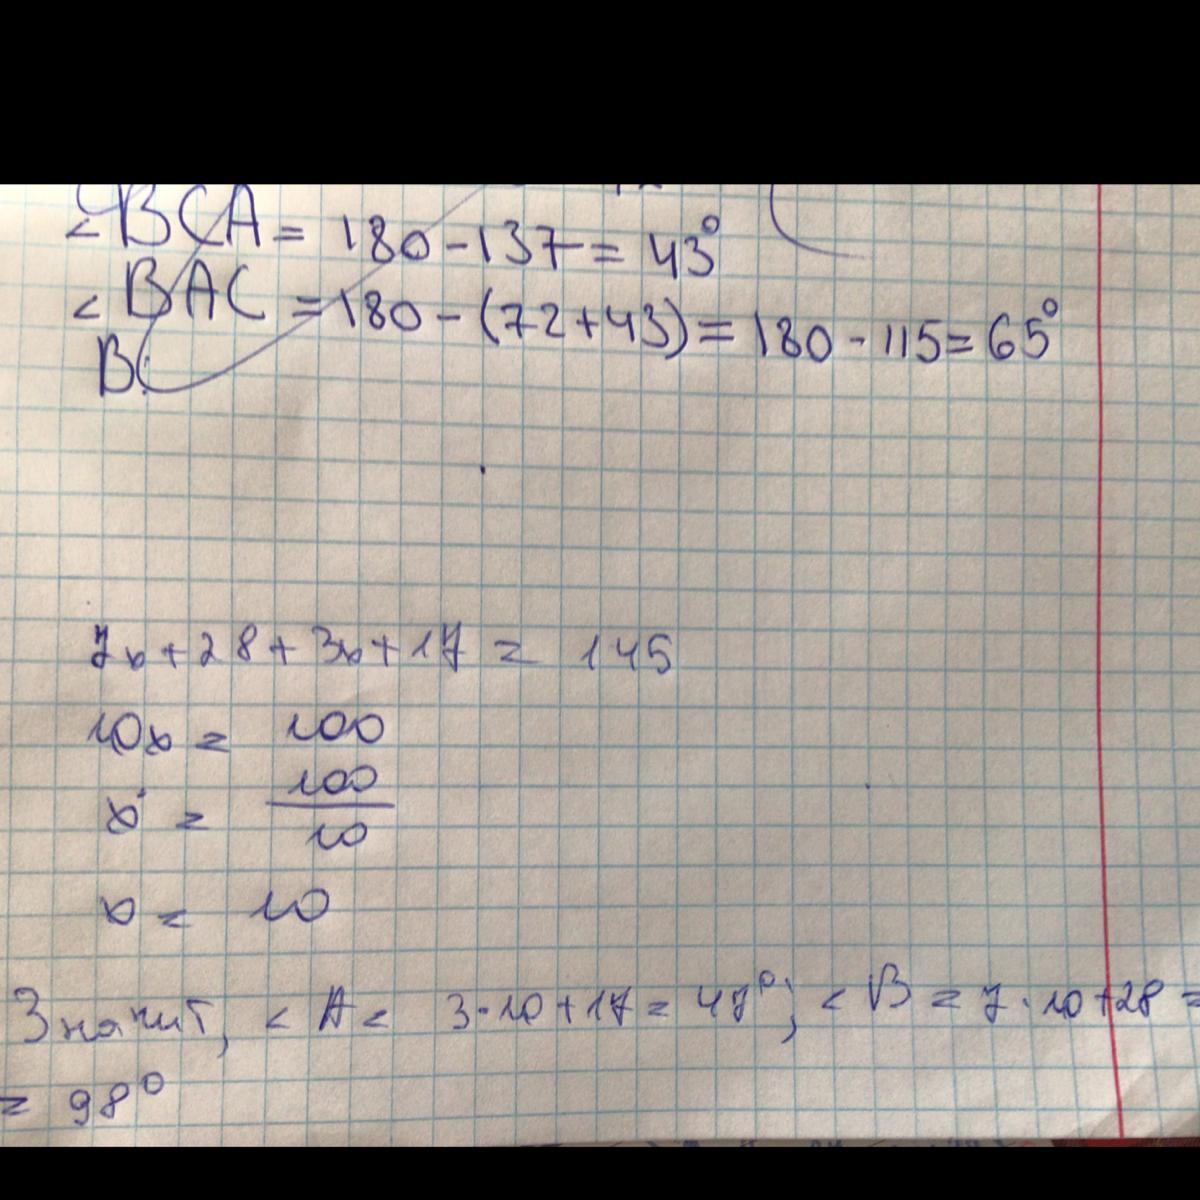 ∠BCA = 180 - 137 = 43°
∠BAC = 180 - (72 + 43) = 180 - 115 = 65°
BC
7x + 28 + 3x + 17 = 145
10x = 100
x = 100/10
x = 10
Значит, ∠A = 3·10 + 17 = 47°; ∠B = 7·10 + 28 =
= 98°